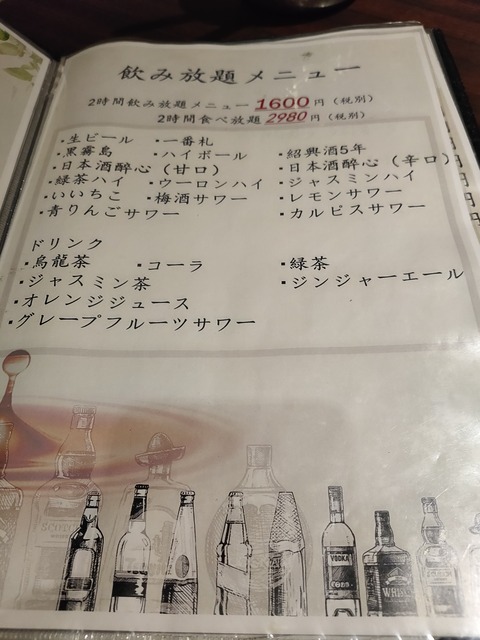 飲み放題メニュー
2時間飲み放題メニュー 1600円（税別）
2時間食べ放題 2980円（税別）
・生ビール ・一番札 ・紹興酒5年
・黒霧島 ・ハイボール ・日本酒酔心（辛口）
・日本酒酔心（甘口） ・ジャスミンハイ
・緑茶ハイ ・ウーロンハイ ・レモンサワー
・いいちこ ・梅酒サワー ・カルピスサワー
・青りんごサワー
ドリンク
・烏龍茶 ・コーラ ・緑茶
・ジャスミン茶 ・ジンジャーエール
・オレンジジュース
・グレープフルーツサワー
VODKA